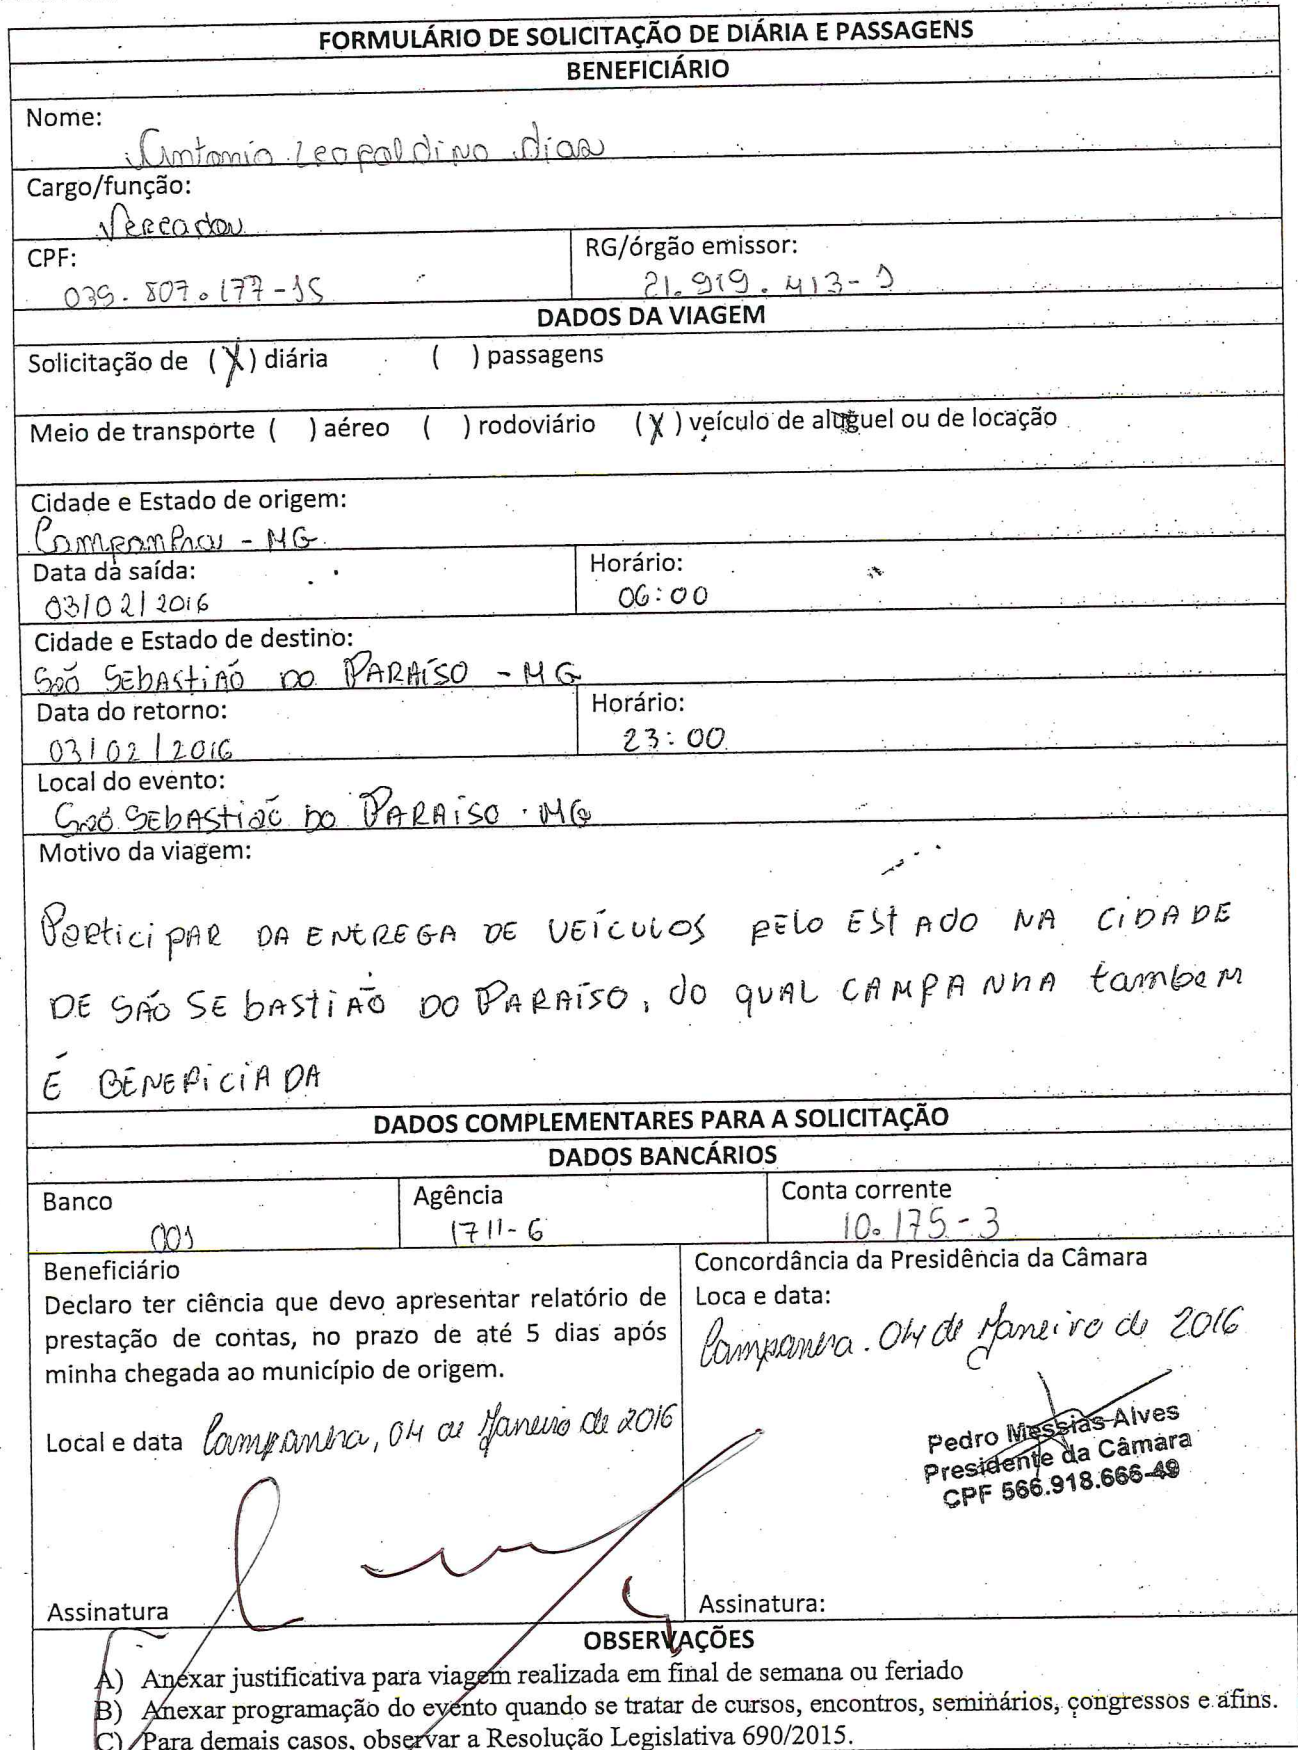 FORMULÁRIO DE SOLICITAÇÃO DE DIÁRIA E PASSAGENS
BENEFICIÁRIO
Nome:
Antonio Leopoldino Dias
Cargo/função:
Vereador
CPF:
RG/órgão emissor:
039.807.177-15
21.919.413-1
DADOS DA VIAGEM
Solicitação de (X) diária ( ) passagens
Meio de transporte ( ) aéreo ( ) rodoviário (X) veículo de aluguel ou de locação
Cidade e Estado de origem:
Campanha - MG
Data da saída:
Horário:
03/02/2016
06:00
Cidade e Estado de destino:
São SEbAStiAõ DO PARAíSO - MG
Data do retorno:
Horário:
03/02/2016
23:00
Local do evento:
São SEbAStiaõ DO PARAiSO - MG
Motivo da viagem:
PARticiPAR DA ENtREGA DE VEíCULOS PELO EStADO NA CiDADE
DE SÃO SEbAStiÃO DO PARAíSO, do QUAL CAMPANhA tambem
É BENEFiCiADA
DADOS COMPLEMENTARES PARA A SOLICITAÇÃO
DADOS BANCÁRIOS
Banco
Agência
Conta corrente
001
1711-6
10.175-3
Beneficiário
Declaro ter ciência que devo apresentar relatório de
prestação de contas, no prazo de até 5 dias após
minha chegada ao município de origem.
Local e data Campanha, 04 de Janeiro de 2016
Assinatura
Concordância da Presidência da Câmara
Loca e data:
Campanha. 04 de Janeiro de 2016
Pedro Messias Alves
Presidente da Câmara
CPF 566.918.666-49
Assinatura:
OBSERVAÇÕES
A) Anexar justificativa para viagem realizada em final de semana ou feriado
B) Anexar programação do evento quando se tratar de cursos, encontros, seminários, congressos e afins.
C) Para demais casos, observar a Resolução Legislativa 690/2015.